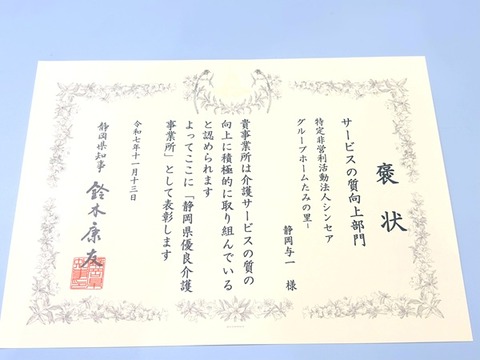 褒状
サービスの質向上部門
特定非営利活動法人シンセア
グループホームたみの里−
静岡与一 様
貴事業所は介護サービスの質の
向上に積極的に取り組んでいる
と認められます
よってここに「静岡県優良介護
事業所」として表彰します
令和七年十一月十三日
静岡県知事 鈴木康友